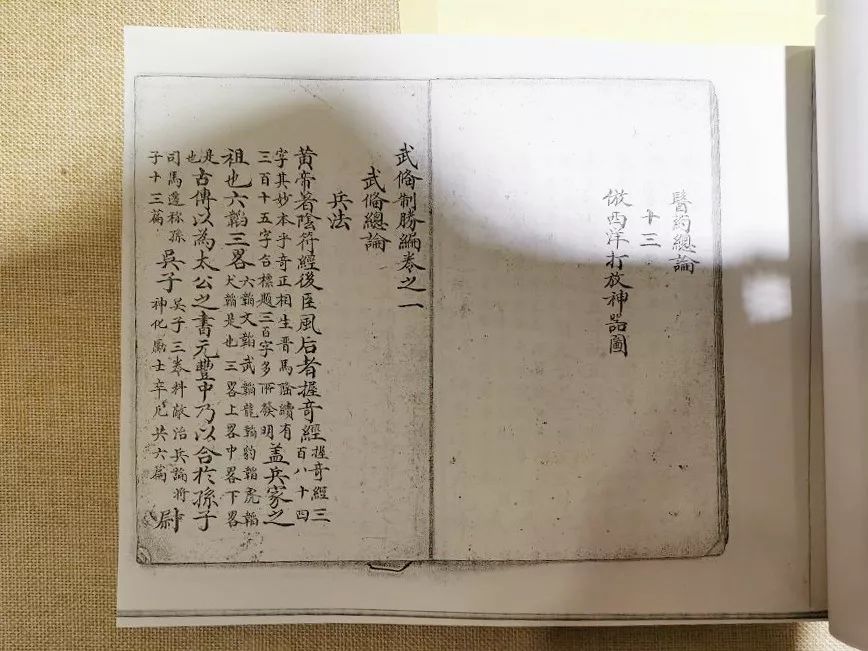 醫药總論
十三
倣西洋打放神器圖
武俻制勝編卷之一
武俻總論
兵法
黄帝著陰符經後臣風后者握奇經握奇經三
百八十四
字其妙本乎奇正相生晋馬隆續有
三百十五字台標題三百字多所發明盖兵家之
祖也六韜三畧六韜文韜武韜龍韜豹韜虎韜
犬韜是也三畧上畧中畧下畧
是
也古傳以為太公之書元豐中乃以合於孫子
司馬遷称孫
子十三篇吳子吳子三卷料敵治兵論将
神化勵士辛尼共六篇尉